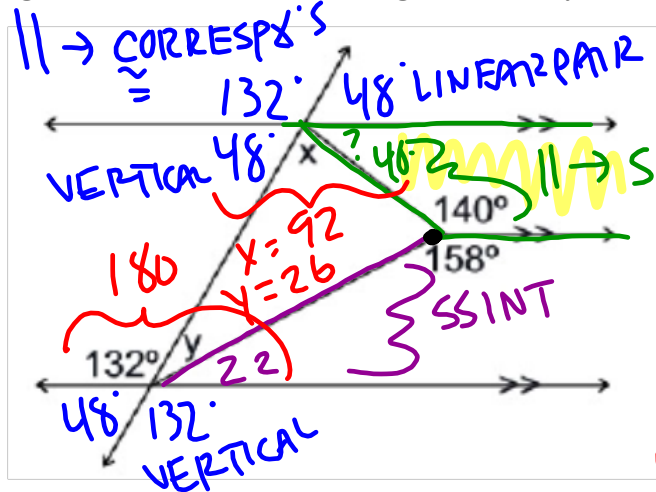 || → CORRESP ∠'S
≅
132° 48° LINEAR PAIR
VERTICAL 48° x ? 40° || → S
140°
x = 92
158°
180 y = 26
SSINT
132° y 22
48° 132°
VERTICAL